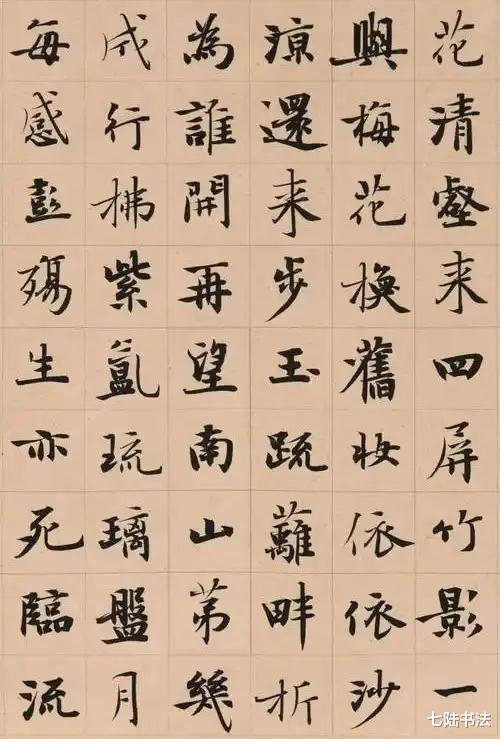 花清壑来四屏竹影一
與梅花換舊妝依依沙
涼還来步玉疏蘺畔折
為誰開再望南山第幾
成行拂紫氤琉璃盤月
每感彭殤生亦死臨流
七陆书法